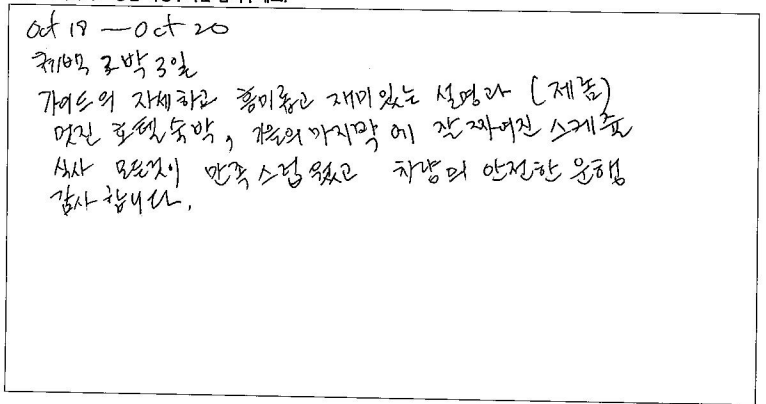 Oct 18 — Oct 20
퀘백 2박 3일
가이드의 자세하고 흥미롭고 재미있는 설명과 (제롬)
멋진 호텔숙박, 가을의 마지막에 잘 짜여진 스케쥴
식사 모든것이 만족스럽웠고 차량의 안전한 운행
감사합니다.